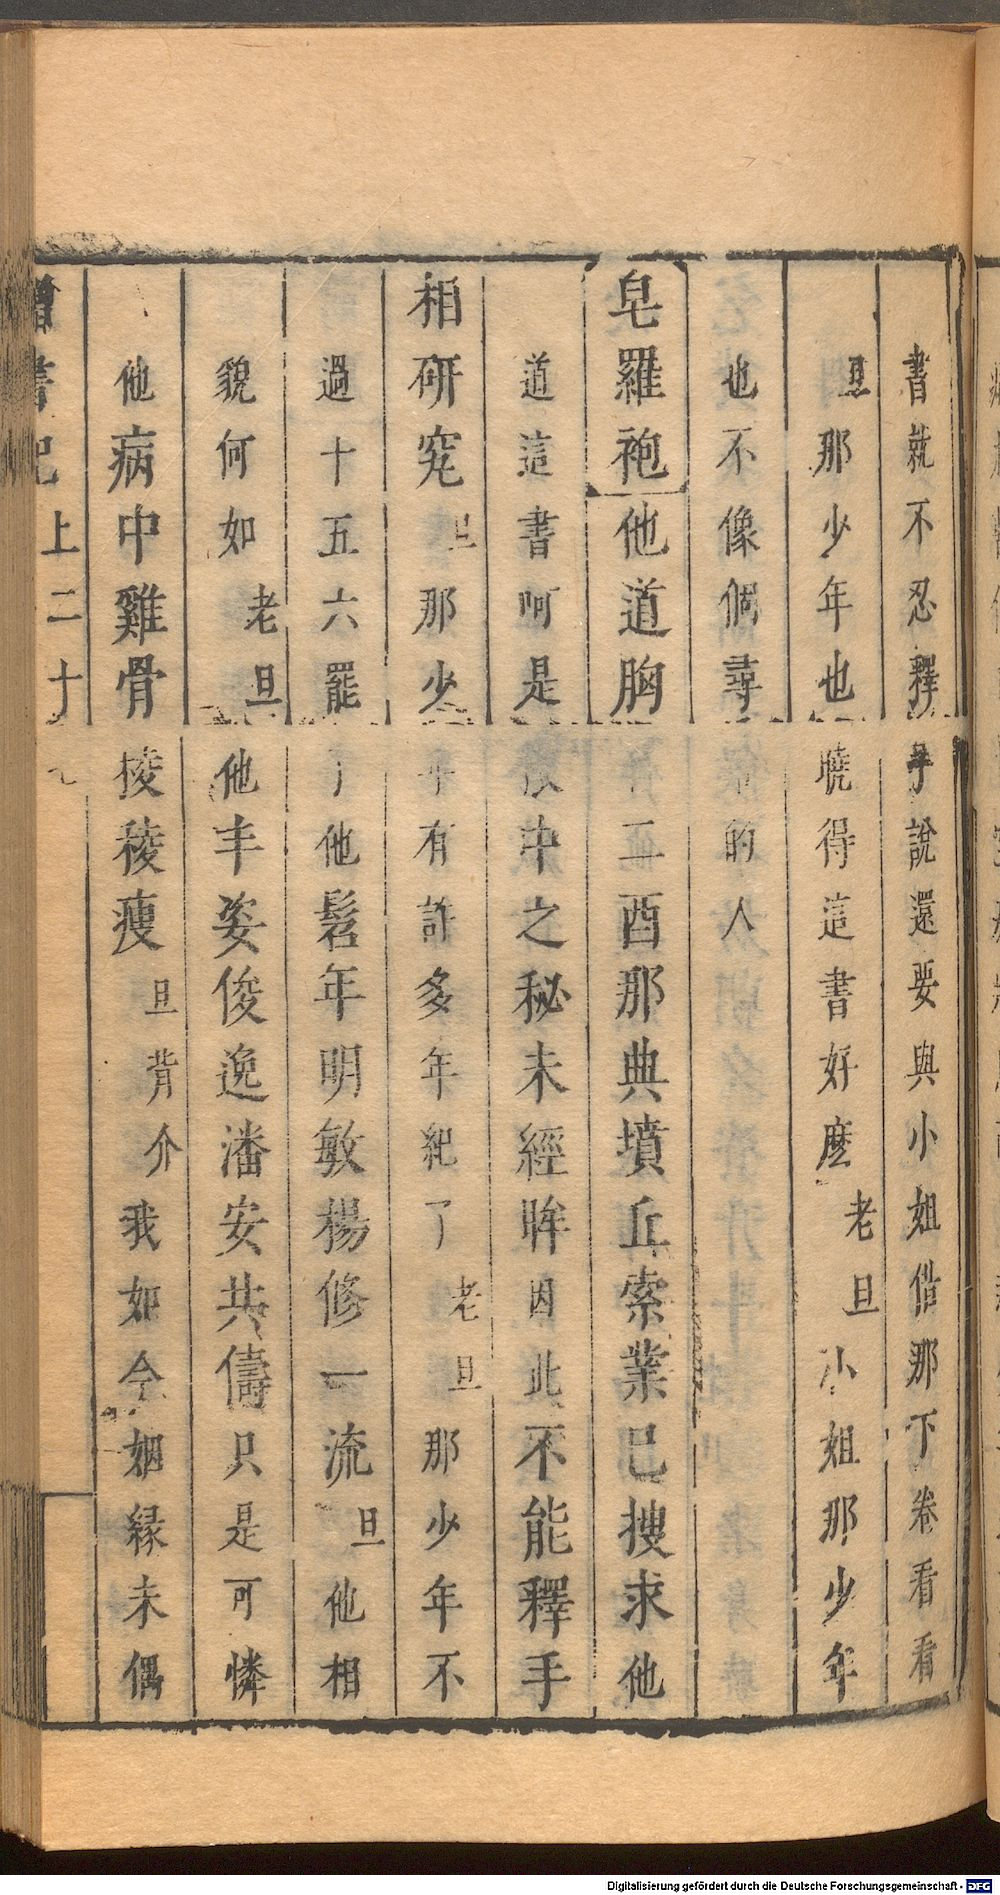 書就不忍釋手說還要與小姐借那下卷看看
旦那少年也曉得這書好麽老旦小姐那少年
也不像個尋的人
皂羅袍他道胸二酉那典墳丘索業已搜求他
道這書呵是中之秘未經眸因此不能釋手
相研究旦那少年有許多年紀了老旦那少年不
過十五六罷了他髫年明敏楊修一流旦他相
貌何如老旦他丰姿俊逸潘安共儔只是可憐
他病中雞骨棱稜瘦旦背介我如今姻緣未偶
書記上二十
Digitalisierung gefördert durch die Deutsche Forschungsgemeinschaft - DFG